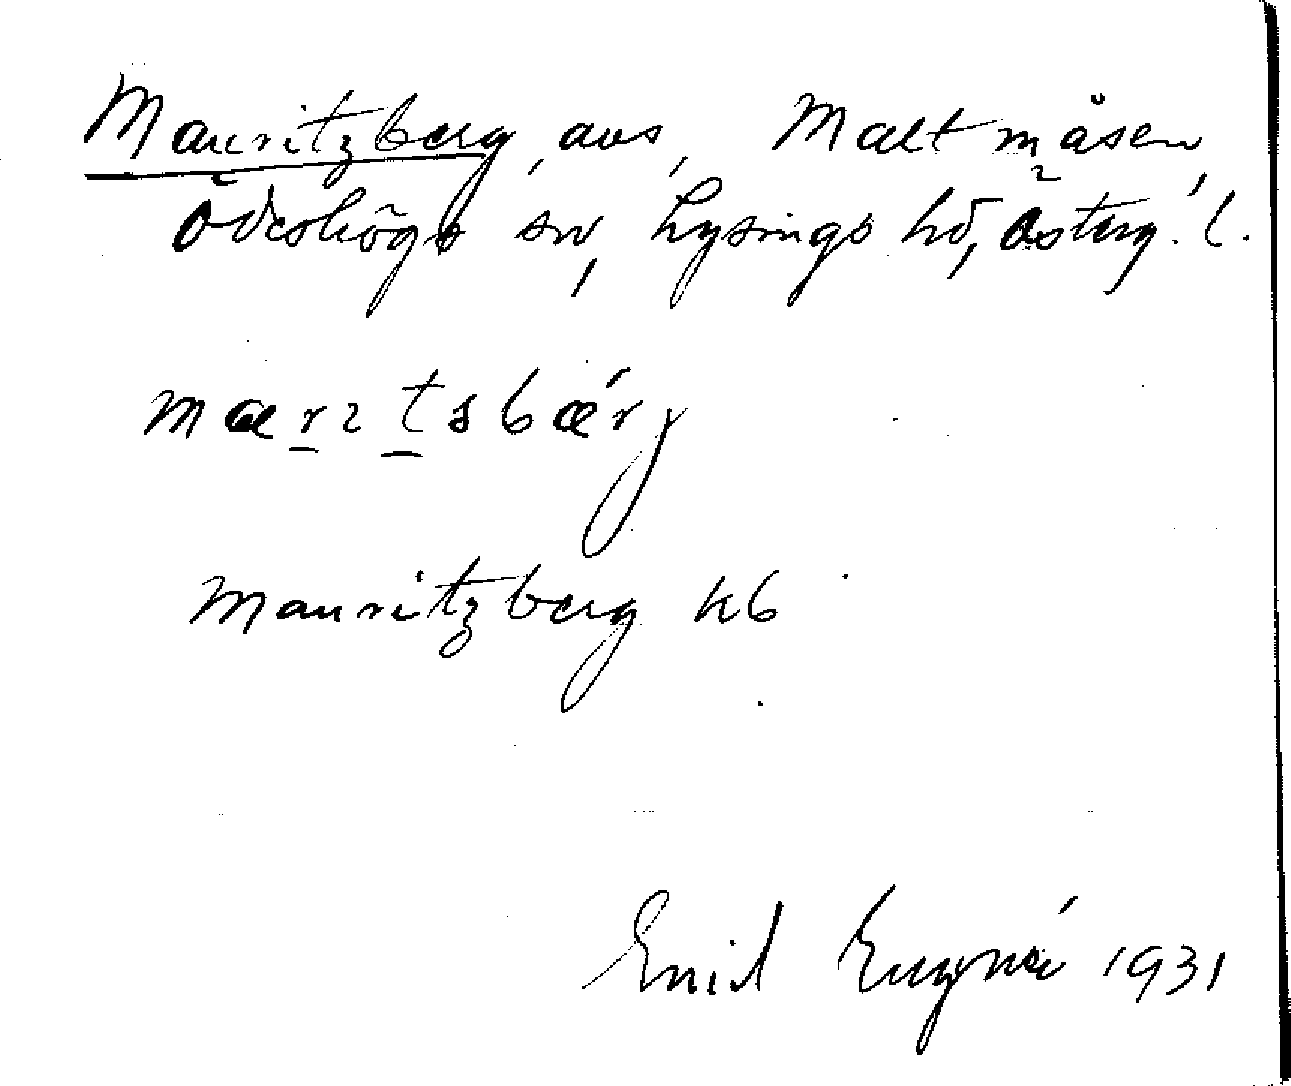 Mauritzberg, avs, Maltmåsen,
Ödeshögs sn, Lysings hd, Österg. l.
mærıtsbǽrj
Mauritzberg kb
Enid Eugnér 1931